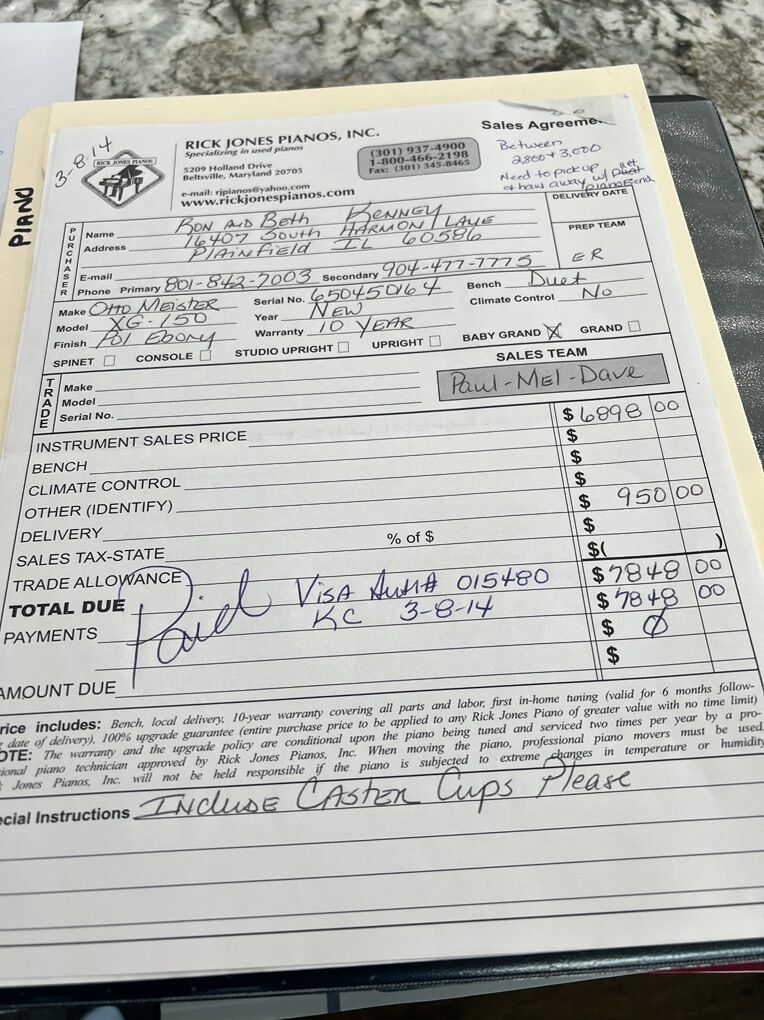 3-8-14
RICK JONES PIANOS
RICK JONES PIANOS, INC.
Specializing in used pianos
5209 Holland Drive
Beltsville, Maryland 20705
e-mail: rjpianos@yahoo.com
www.rickjonespianos.com
(301) 937-4900
1-800-466-2198
Fax: (301) 345-8465
Sales Agreeme
Between
2,800 + 3,000
Need to pick up
+ haul away w/ Duet
piano Bend
PIANO
DELIVERY DATE
PREP TEAM
ER
PURCHASER
Name Ron and Beth Kenney
Address 16407 South Harmon Lane
Plainfield IL 60586
E-mail
Phone Primary 801-842-7003 Secondary 904-477-7775
Make Otto Meister Serial No. 650450164 Bench Duet
Model XG-150 Year New Climate Control No
Finish Pol Ebony Warranty 10 Year
SPINET CONSOLE STUDIO UPRIGHT UPRIGHT BABY GRAND X GRAND
TRADE
Make
Model
Serial No.
SALES TEAM
Paul-Mel-Dave
INSTRUMENT SALES PRICE $6898 00
BENCH $
CLIMATE CONTROL $
OTHER (IDENTIFY) $
DELIVERY $ 950 00
SALES TAX-STATE % of $ $
TRADE ALLOWANCE $( )
TOTAL DUE $7848 00
PAYMENTS Paid Visa Auth# 015480 $7848 00
KC 3-8-14 $ 0
AMOUNT DUE $
rice includes: Bench, local delivery, 10-year warranty covering all parts and labor, first in-home tuning (valid for 6 months follow-
g date of delivery), 100% upgrade guarantee (entire purchase price to be applied to any Rick Jones Piano of greater value with no time limit)
OTE: The warranty and the upgrade policy are conditional upon the piano being tuned and serviced two times per year by a pro-
sional piano technician approved by Rick Jones Pianos, Inc. When moving the piano, professional piano movers must be used.
k Jones Pianos, Inc. will not be held responsible if the piano is subjected to extreme changes in temperature or humidity
ecial Instructions Include Caster Cups Please